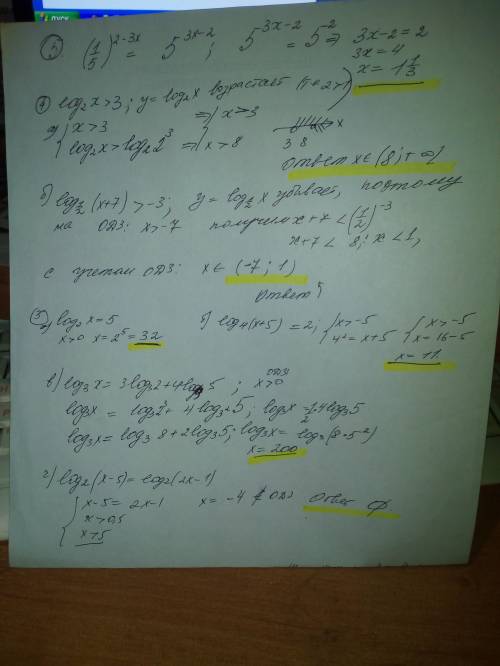 ③ (1/5)^(2-3x) = 5^(3x-2) ; 5^(3x-2) = 5^(-2) ⇒ 3x-2=2
3x=4
x = 1 1/3
④ log₂x>3; y=log₂x возрастает (т.к 2>1)
а) { x>3 ⇒ { x>3
{ log₂x>log₂2³ ⇒ { x>8
3 8 x
Ответ x∈(8;+∞)
б) log_(1/2)(x+7)>-3; y=log_(1/2)x убывает, поэтому
на ОДЗ: x>-7 получим x+7<(1/2)^(-3)
x+7<8; x<1,
с учетом ОДЗ: x∈(-7;1)
Ответ
⑤ а) log₂x=5 б) log₄(x+5)=2; { x>-5 { x>-5
x>0 x=2⁵=32 { 4²=x+5 { x=16-5
x=11
в) log₃x=3log₃2+4log₉5; x>0 ОДЗ
log₃x=log₃2³+4log₃²5; log₃x 1/2·4log₃5
log₃x=log₃8+2log₃5; log₃x=log₃(8·5²)
x=200
г) log₂(x-5)=log₂(2x-1)
{ x-5=2x-1 x=-4 ∉ ОДЗ Ответ ∅
{ x>0,5
{ x>5